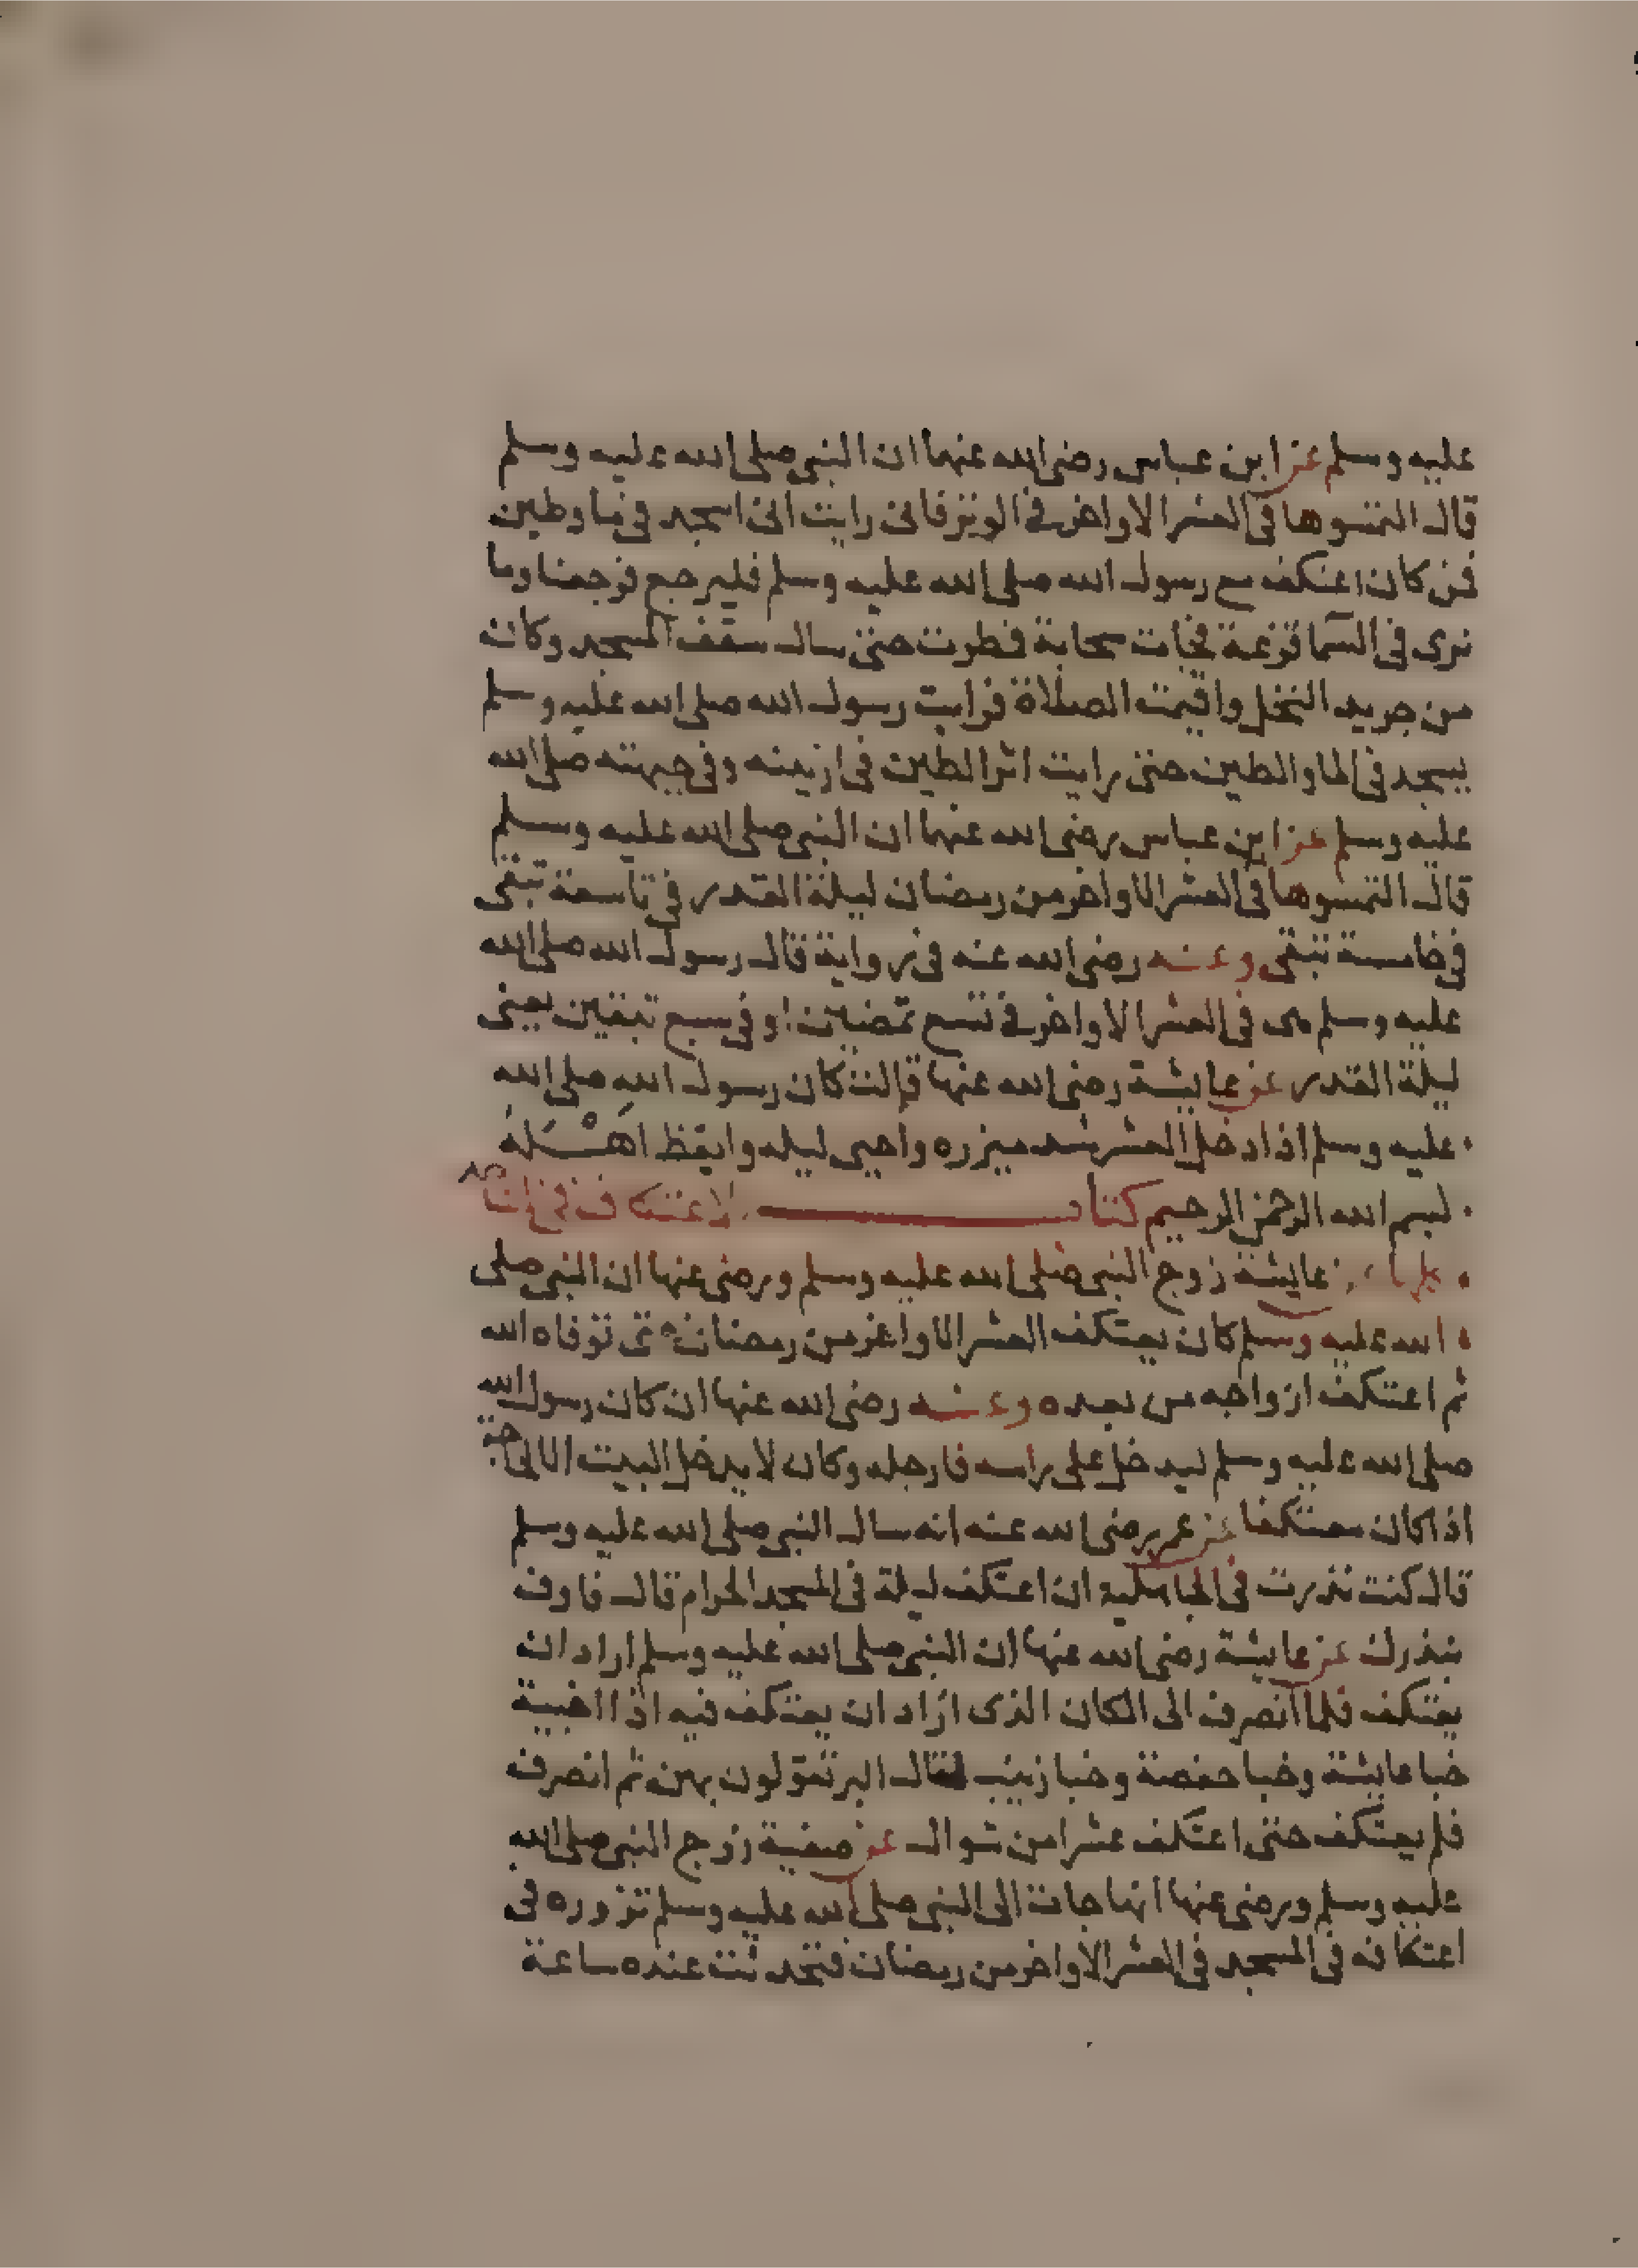 عليه وسلم عن ابن عباس رضي الله عنهما ان النبي صلى الله عليه وسلم
قال التمسوها في العشر الاواخر في الوتر فاني رايت اني اسجد في ما وطين
فمن كان اعتكف مع رسول الله صلى الله عليه وسلم فليرجع فرجعنا وما
نرى في السما قزعة فجات سحابة فمطرت حتى سال سقف المسجد وكان
من جريد النخل واقيمت الصلاة فرايت رسول الله صلى الله عليه وسلم
يسجد في الما والطين حتى رايت اثر الطين في ارنبته وفي جبهته صلى الله
عليه وسلم عن ابن عباس رضي الله عنهما ان النبي صلى الله عليه وسلم
قال التمسوها في العشر الاواخر من رمضان ليلة القدر في تاسعة تبقى
في خامسة تبقى وعنه رضي الله عنه في رواية قال رسول الله صلى الله
عليه وسلم هي في العشر الاواخر في تسع تمضين او في سبع تبقين يعني
ليلة القدر عن عايشة رضي الله عنها قالت كان رسول الله صلى الله
عليه وسلم اذا دخل العشر شد ميزره واحيى ليله وايقظ اهله
بسم الله الرحمن الرحيم كتاب الاعتكاف في
عايشة زوج النبي صلى الله عليه وسلم ورضي عنها ان النبي صلى
الله عليه وسلم كان يعتكف العشر الاواخر من رمضان حتى توفاه الله
ثم اعتكف ازواجه من بعده وعنه رضي الله عنها ان كان رسول الله
صلى الله عليه وسلم ليدخل على راسه فارجله وكان لا يدخل البيت الا لحاجة
اذا كان معتكفا عن عمر رضي الله عنه انه سال النبي صلى الله عليه وسلم
قال كنت نذرت في الجاهلية ان اعتكف ليلة في المسجد الحرام قال فاوف
بنذرك عن عايشة رضي الله عنها ان النبي صلى الله عليه وسلم اراد ان
يعتكف فلما انصرف الى المكان الذي اراد ان يعتكف فيه اذا اخبية
خبا عايشة وخبا حفصة وخبا زينب فقال البر تقولون بهن ثم انصرف
فلم يعتكف حتى اعتكف عشرا من شوال عن صفية زوج النبي صلى الله
عليه وسلم ورضي عنها انها جات الى النبي صلى الله عليه وسلم تزوره في
اعتكافه في المسجد في العشر الاواخر من رمضان فتحدثت عنده ساعة